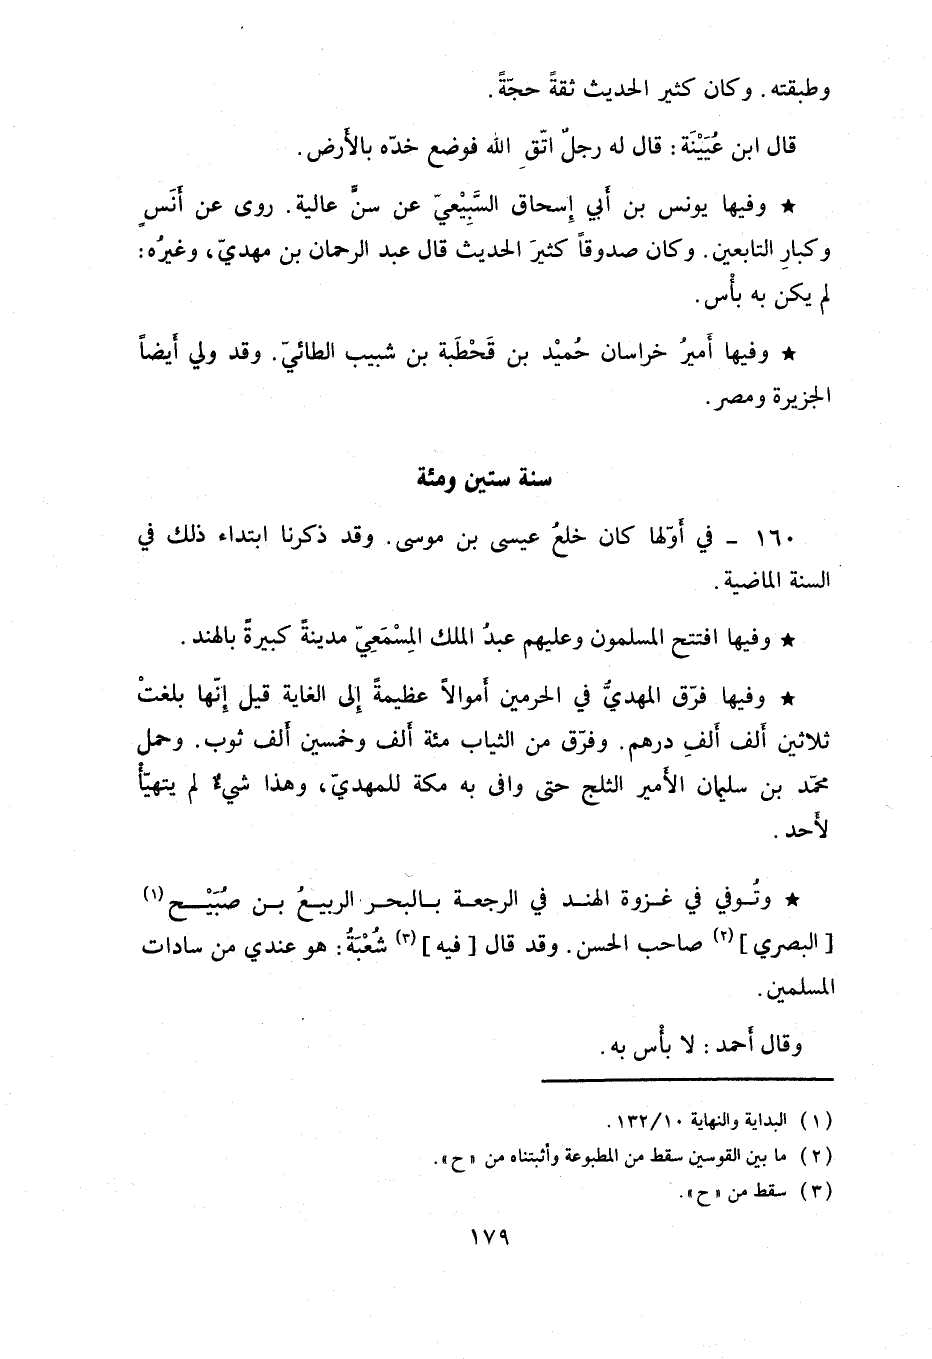 وطبقته. وكان كثير الحديث ثقةً حجّةً.
قال ابن عُيَيْنَة: قال له رجلٌ اتّقِ الله فوضع خدّه بالأَرض.
★ وفيها يونس بن أبي إسحاق السَّبِيْعيّ عن سنٍّ عالية. روى عن أَنَسٍ
وكبارِ التابعين. وكان صدوقاً كثيرَ الحديث قال عبد الرحمان بن مهديّ، وغيرُه:
لم يكن به بأْس.
★ وفيها أَميرُ خراسان حُميْد بن قَحْطَبة بن شبيب الطائيّ. وقد ولي أَيضاً
الجزيرة ومصر.
سنة ستين ومئة
١٦٠ - في أَوّلها كان خلعُ عيسى بن موسى. وقد ذكرنا ابتداء ذلك في
السنة الماضية.
★ وفيها افتتح المسلمون وعليهم عبدُ الملك المِسْمَعِيّ مدينةً كبيرةً بالهند.
★ وفيها فرّق المهديُّ في الحرمين أَموالاً عظيمةً إلى الغاية قيل إنّها بلغتْ
ثلاثين أَلف أَلفِ درهم. وفرّق من الثياب مئة أَلف وخمسين أَلف ثوب. وحمل
محمّد بن سليمان الأَمير الثلج حتى وافى به مكة للمهديّ، وهذا شيءٌ لم يتهيّأْ
لأَحد.
★ وتُوفي في غزوة الهند في الرجعة بالبحر الربيعُ بن صُبَيْح (١)
[ البصري ] (٢) صاحب الحسن. وقد قال [ فيه ] (٣) شُعْبَةُ: هو عندي من سادات
المسلمين.
وقال أَحمد: لا بأْس به.
(١) البداية والنهاية ١٣٢/١٠.
(٢) ما بين القوسين سقط من المطبوعة وأثبتناه من «ح».
(٣) سقط من «ح».
١٧٩